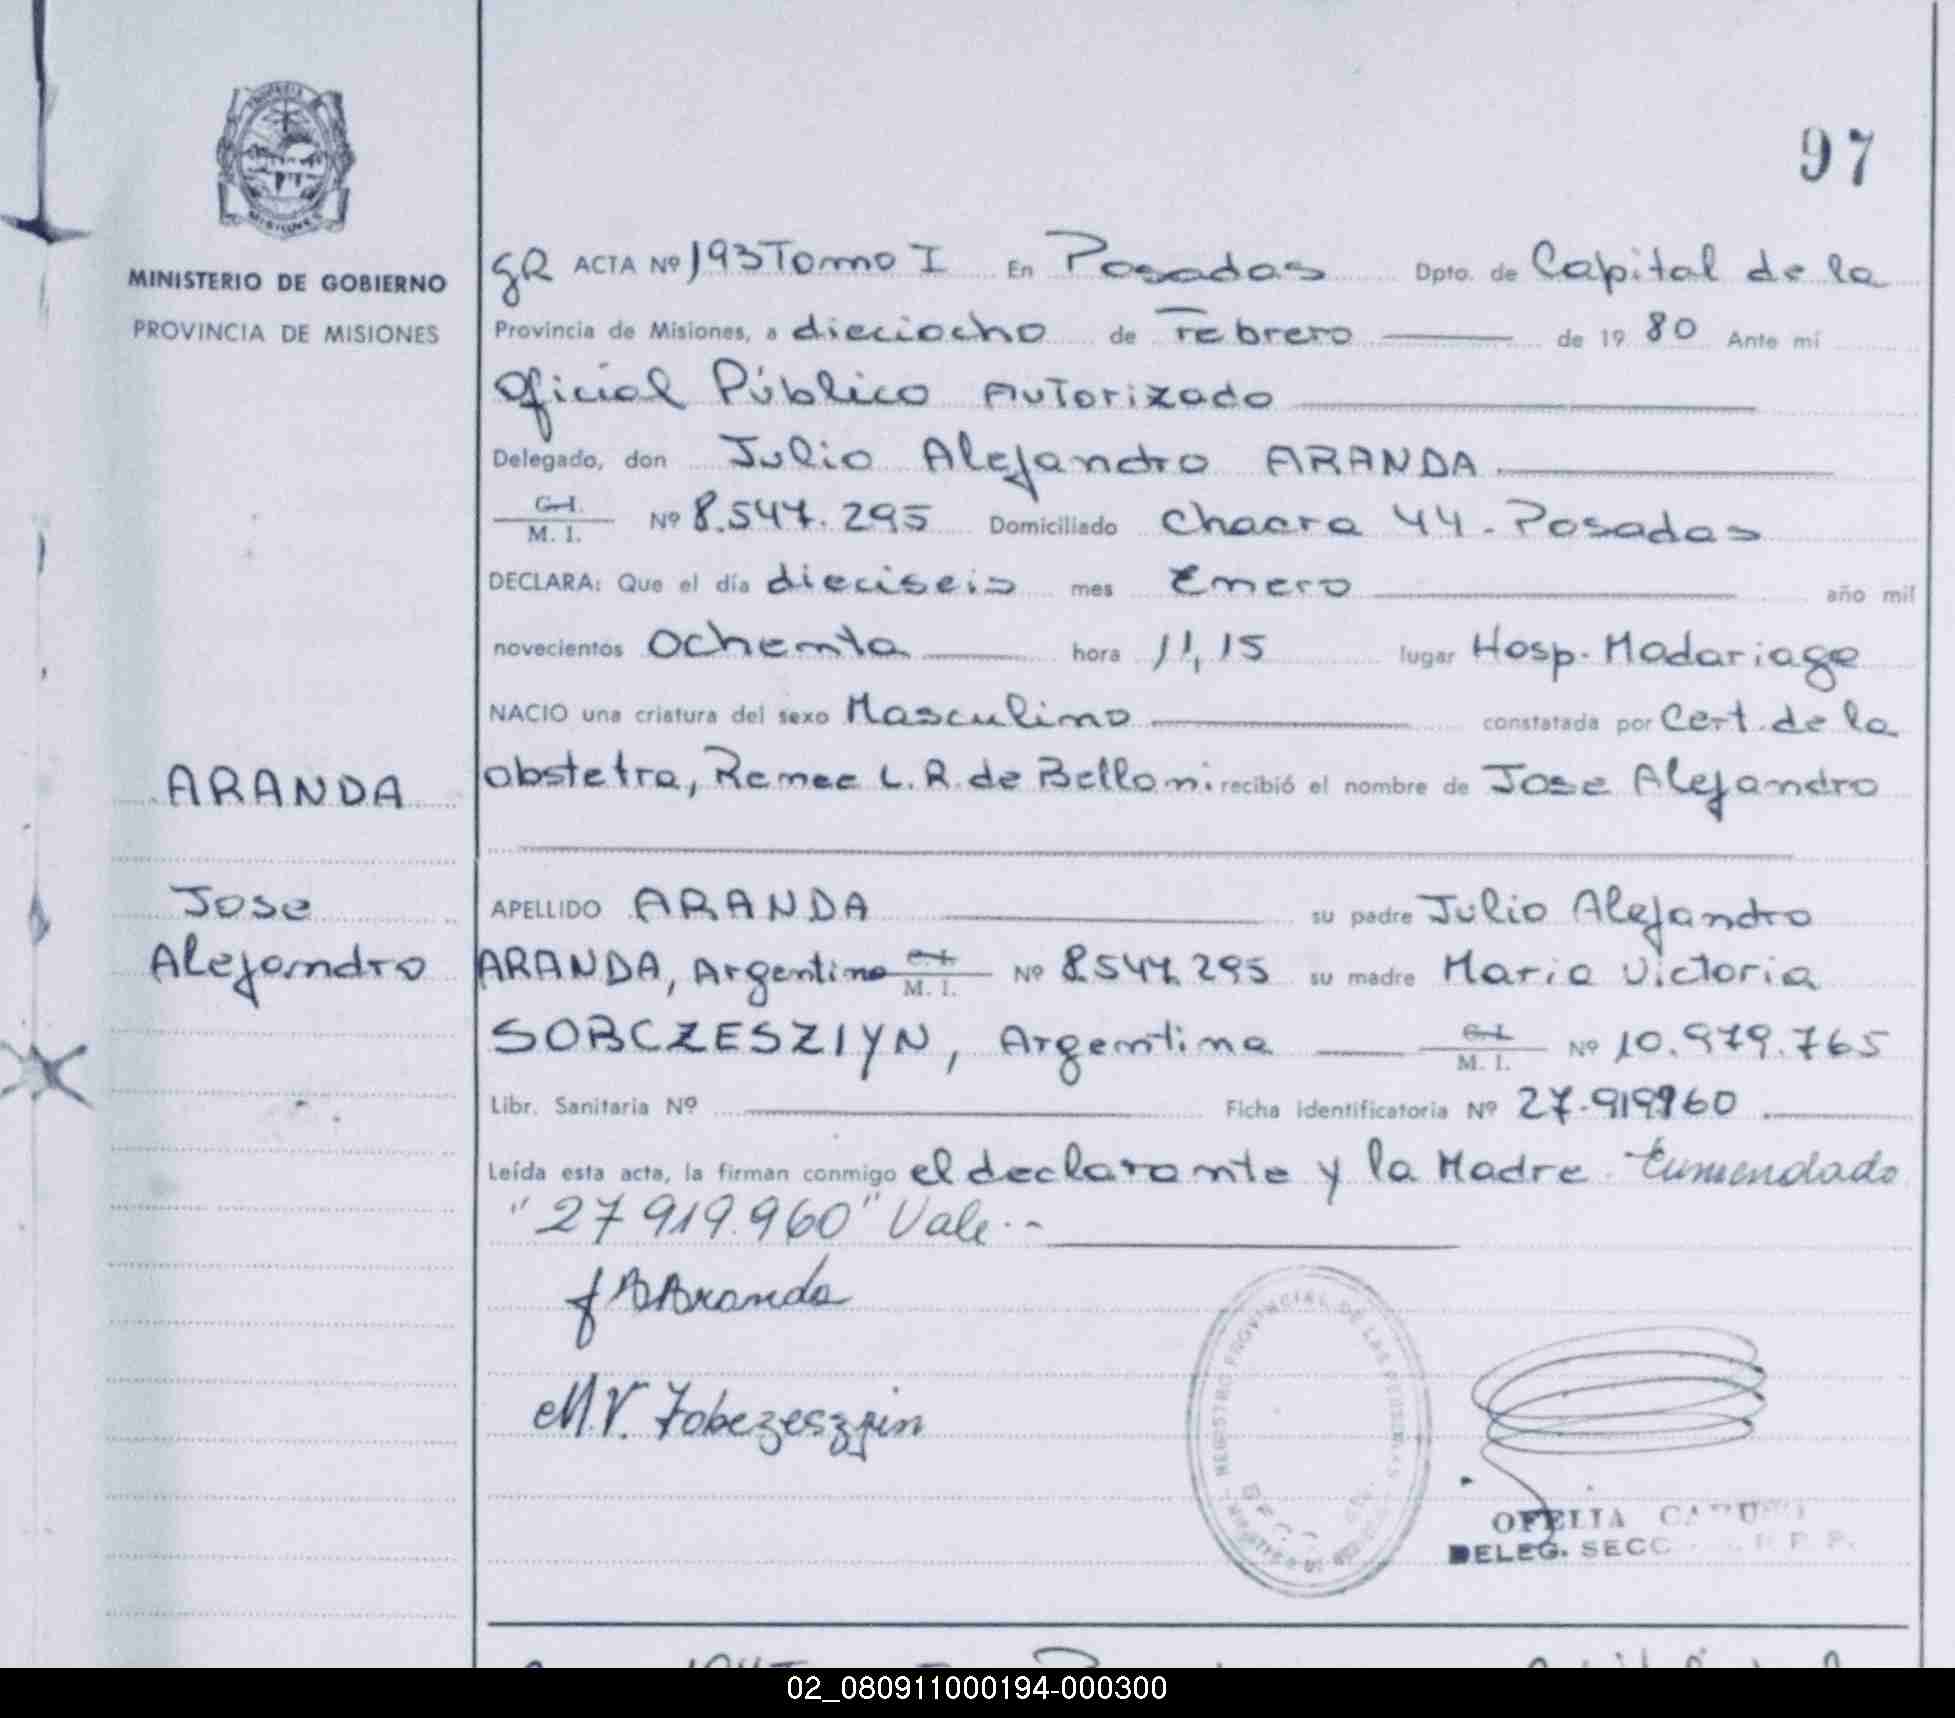 97
MINISTERIO DE GOBIERNO
PROVINCIA DE MISIONES
gR ACTA Nº 193 Tomo I En Posadas Dpto. de Capital de la
Provincia de Misiones, a dieciocho de Febrero de 19 80 Ante mí
Oficial Público Autorizado
Delegado, don Julio Alejandro ARANDA
C.I. M. I. Nº 8.547.295 Domiciliado Chacra 44 - Posadas
DECLARA: Que el día dieciseis mes Enero año mil
novecientos ochenta hora 11,15 lugar Hosp. Madariaga
NACIO una criatura del sexo Masculino constatada por Cert. de la
obstetra, Renee L. R. de Belloni. recibió el nombre de Jose Alejandro
ARANDA
Jose
Alejandro
APELLIDO ARANDA su padre Julio Alejandro
ARANDA, Argentino C.I. M. I. Nº 8.547.295 su madre Maria Victoria
SOBCZESZIYN, Argentina C.I. M. I. Nº 10.979.765
Libr. Sanitaria Nº Ficha identificatoria Nº 27.919960
Leída esta acta, la firman conmigo el declarante y la Madre. Enmendado
"27919.960" Vale.-
Aranda
M.V. Zobezeszjin
REGISTRO PROVINCIAL DE LAS PERSONAS
OFELIA
DELEG. SECC
02_080911000194-000300